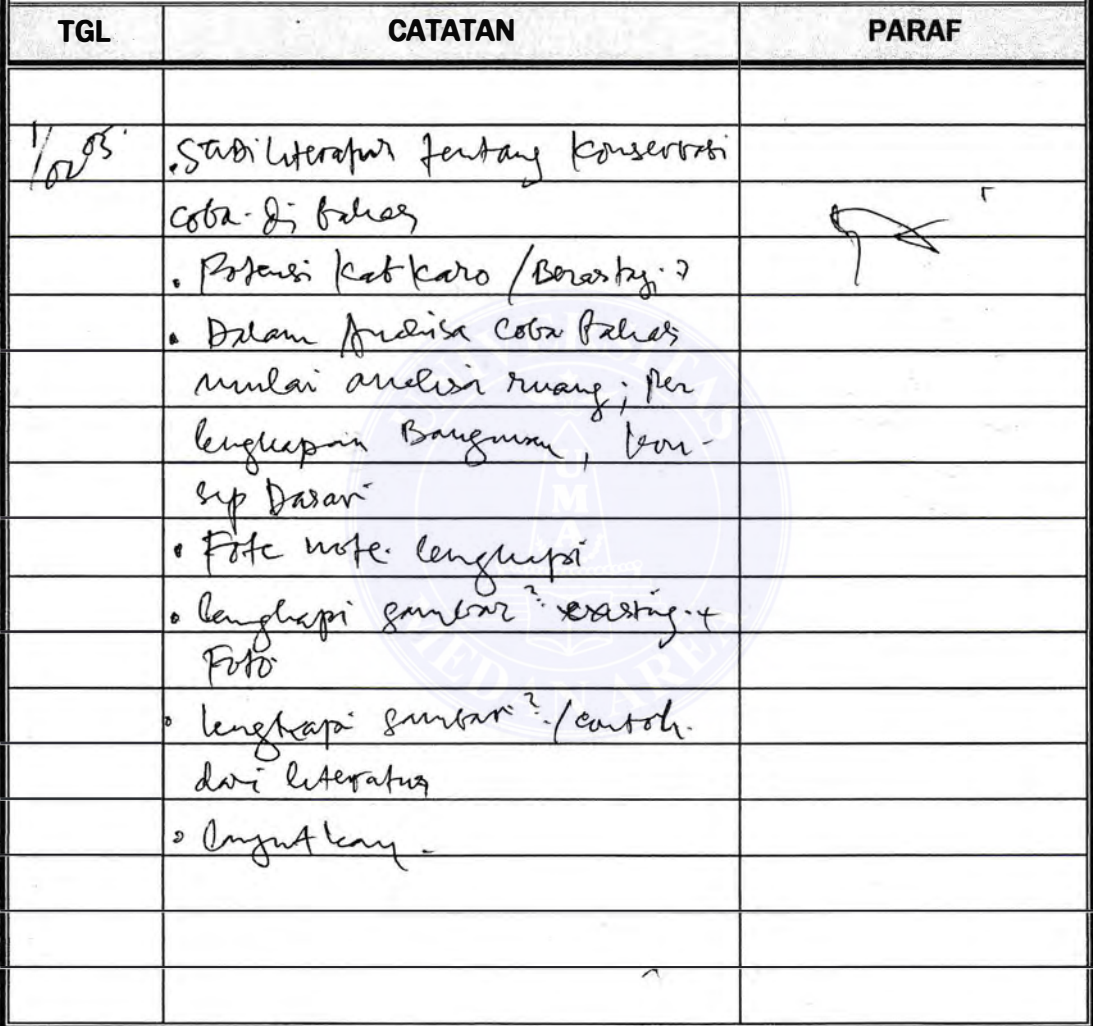 TGL CATATAN PARAF
1/02 05 . Studi literatur tentang konservasi
coba di bahas
. Potensi Kab Karo / Berastagi ?
. Dalam Analisa coba bahas
mulai analisa ruang, per
lengkapan Bangunan, kon-
sep Dasar
. Fote note lengkapi
. lengkapi gambar ² existing +
Foto
. lengkapi gambar ² / contoh
dari literatur
. lanjutkan .
UNIVERSITAS
UMA
MEDAN AREA